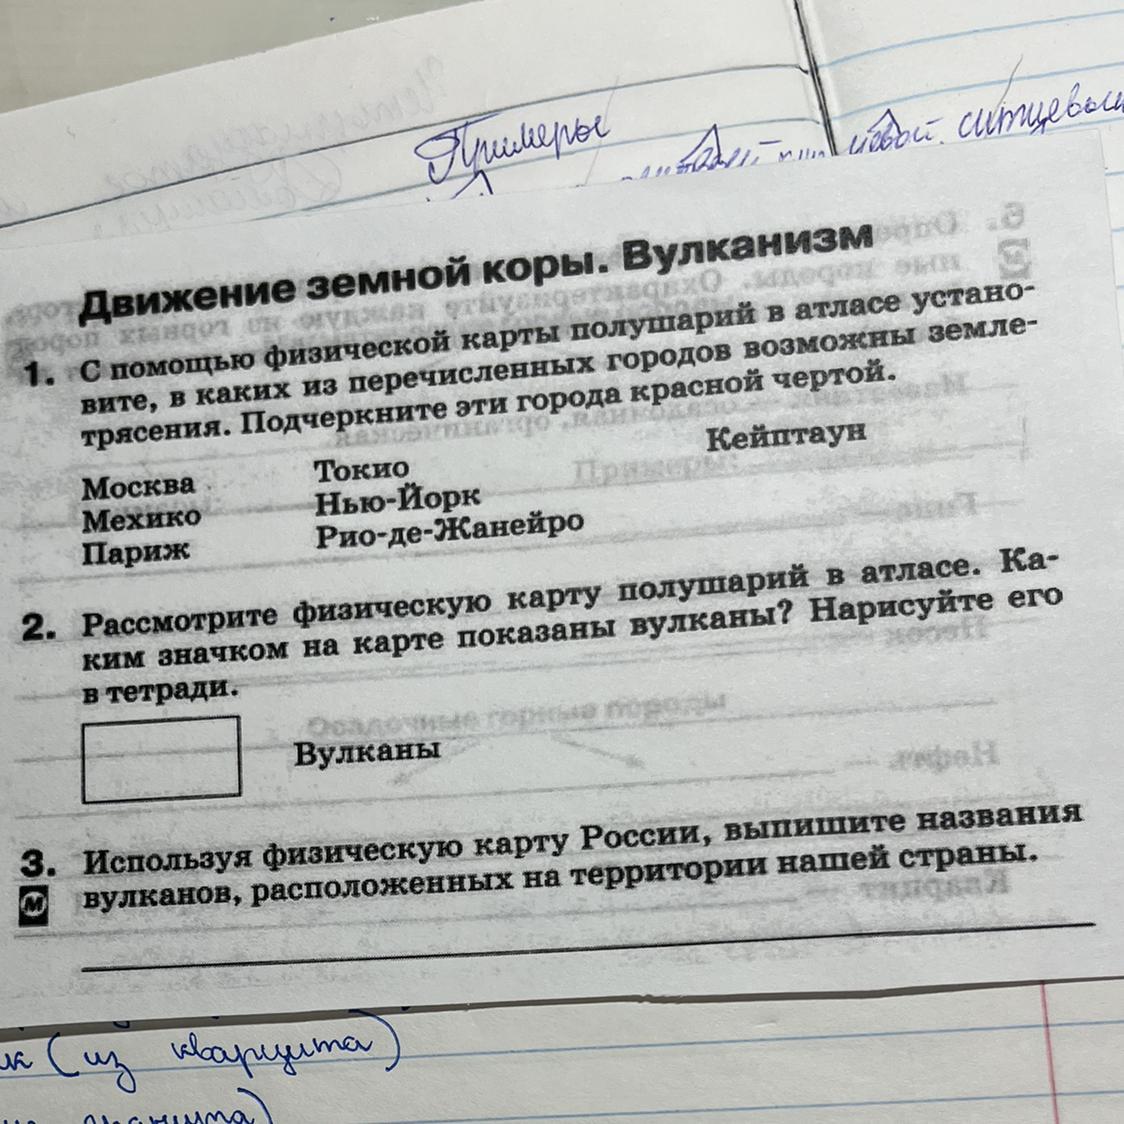 Примеры
ситцевый
Движение земной коры. Вулканизм
1. С помощью физической карты полушарий в атласе устано-
вите, в каких из перечисленных городов возможны земле-
трясения. Подчеркните эти города красной чертой.
Москва Токио Кейптаун
Мехико Нью-Йорк
Париж Рио-де-Жанейро
2. Рассмотрите физическую карту полушарий в атласе. Ка-
ким значком на карте показаны вулканы? Нарисуйте его
в тетради.
Вулканы
3. Используя физическую карту России, выпишите названия
М вулканов, расположенных на территории нашей страны.
(из кварцита)
гранита)